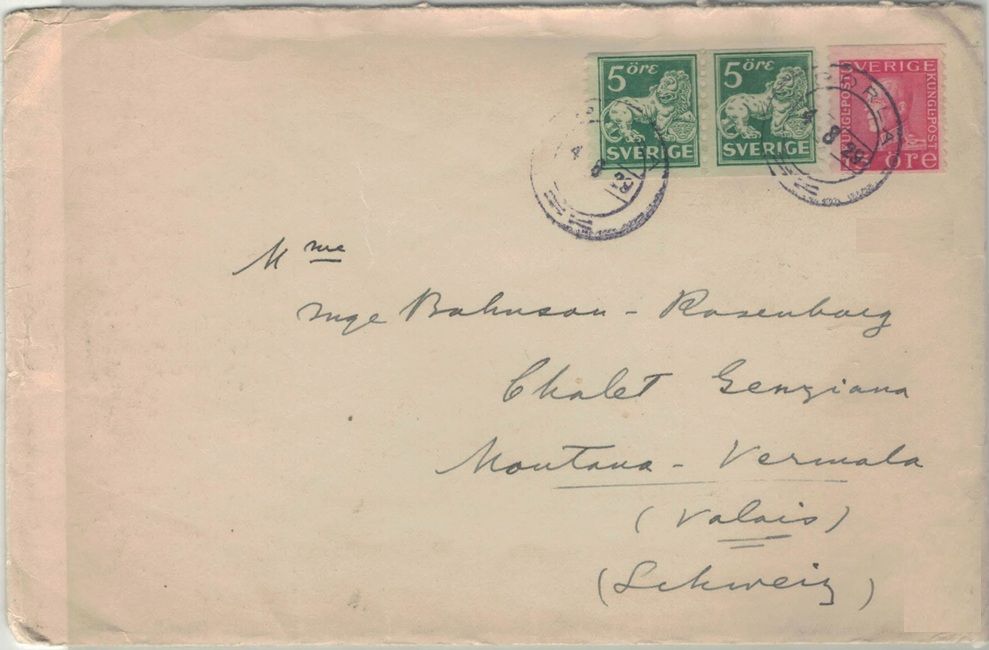 5 öre
SVERIGE
5 öre
SVERIGE
SVERIGE
KUNGL.POST
öre
4 8
4 8
Mme
Inge Bahnson - Rosenborg
Chalet Genziana
Montana - Vermala
(Valais)
(Schweiz)